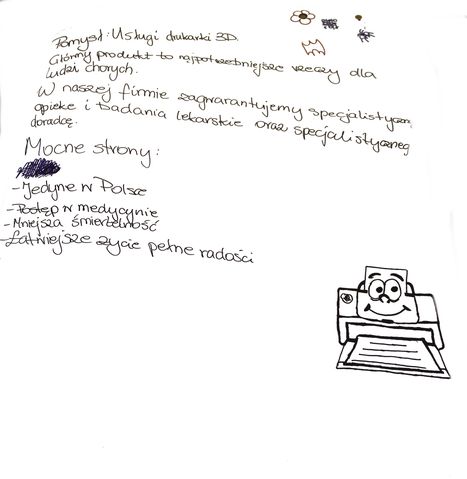 Pomysł: Usługi drukarki 3D.
Główny produkt to najpotrzebniejsze rzeczy dla
ludzi chorych.
W naszej firmie zagwarantujemy specjalistyczną
opiekę i badania lekarskie oraz specjalistycznego
doradcę.
Mocne strony:
- Jedyne w Polsce
- Postęp w medycynie
- Mniejsza śmiertelność
- Łatwiejsze życie pełne radości